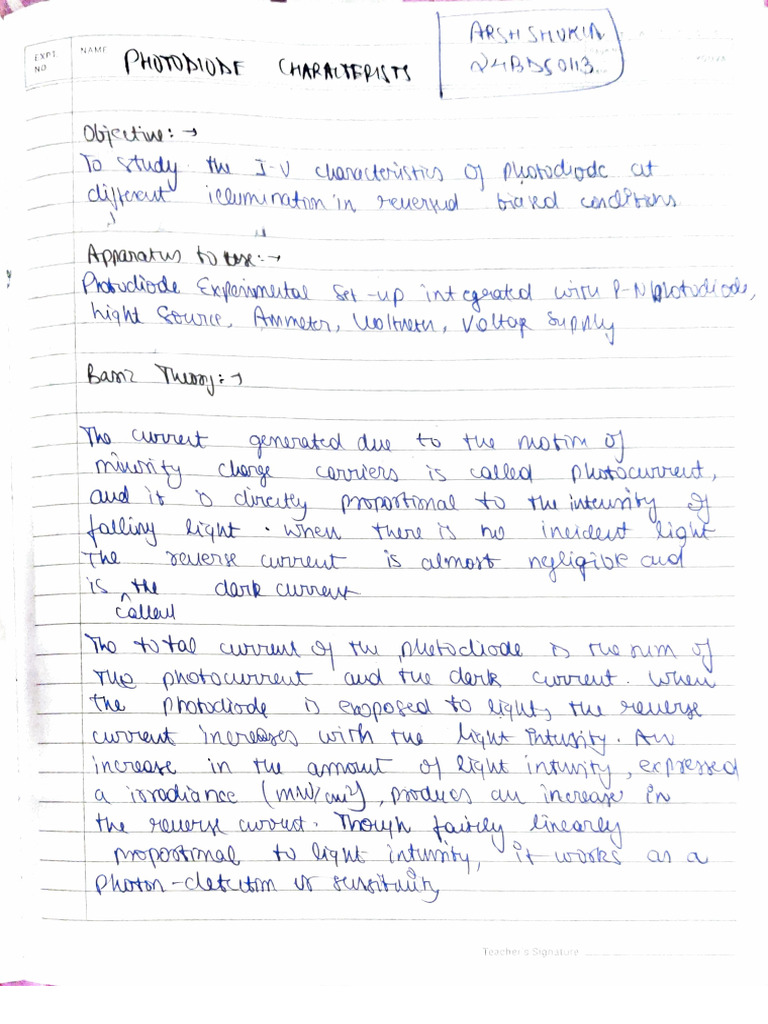 ARSH SHUKLA
24BDS0113
EXPT. NO.
NAME
PHOTODIODE CHARACTERISTS
Objective: →
To study the I-V characteristics of photodiode at
different illumination in reversed biased conditions
Apparatus to use: →
Photodiode Experimental Set-up integrated with P-N photodiode,
Light Source, Ammeter, Voltmeter, Voltage Supply
Basic Theory: →
The current generated due to the motion of
minority charge carriers is called photocurrent,
and it is directly proportional to the intensity of
falling light. When there is no incident light
The reverse current is almost negligible and
is the dark current
called
The total current of the photodiode is the sum of
The photocurrent and the dark current. When
the photodiode is exposed to light, the reverse
current increases with the light intensity. An
increase in the amount of light intensity, expressed
a irradiance (mW/cm²), produces an increase in
the reverse current. Though fairly linearly
proportional to light intensity, it works as a
photon-detection sensitivity
Teacher's Signature